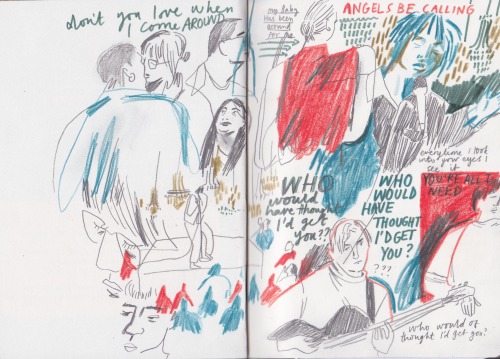 don't you love when
I come AROUND
my baby
Has been
around
for me
ANGELS BE CALLING
everytime I look
into your eyes I
see it
YOU'RE ALL I
NEED
WHO
would
have thought
I'd get
you??
WHO
WOULD
HAVE
THOUGHT
I'D GET
YOU?
???
who would of
thought I'd get you?